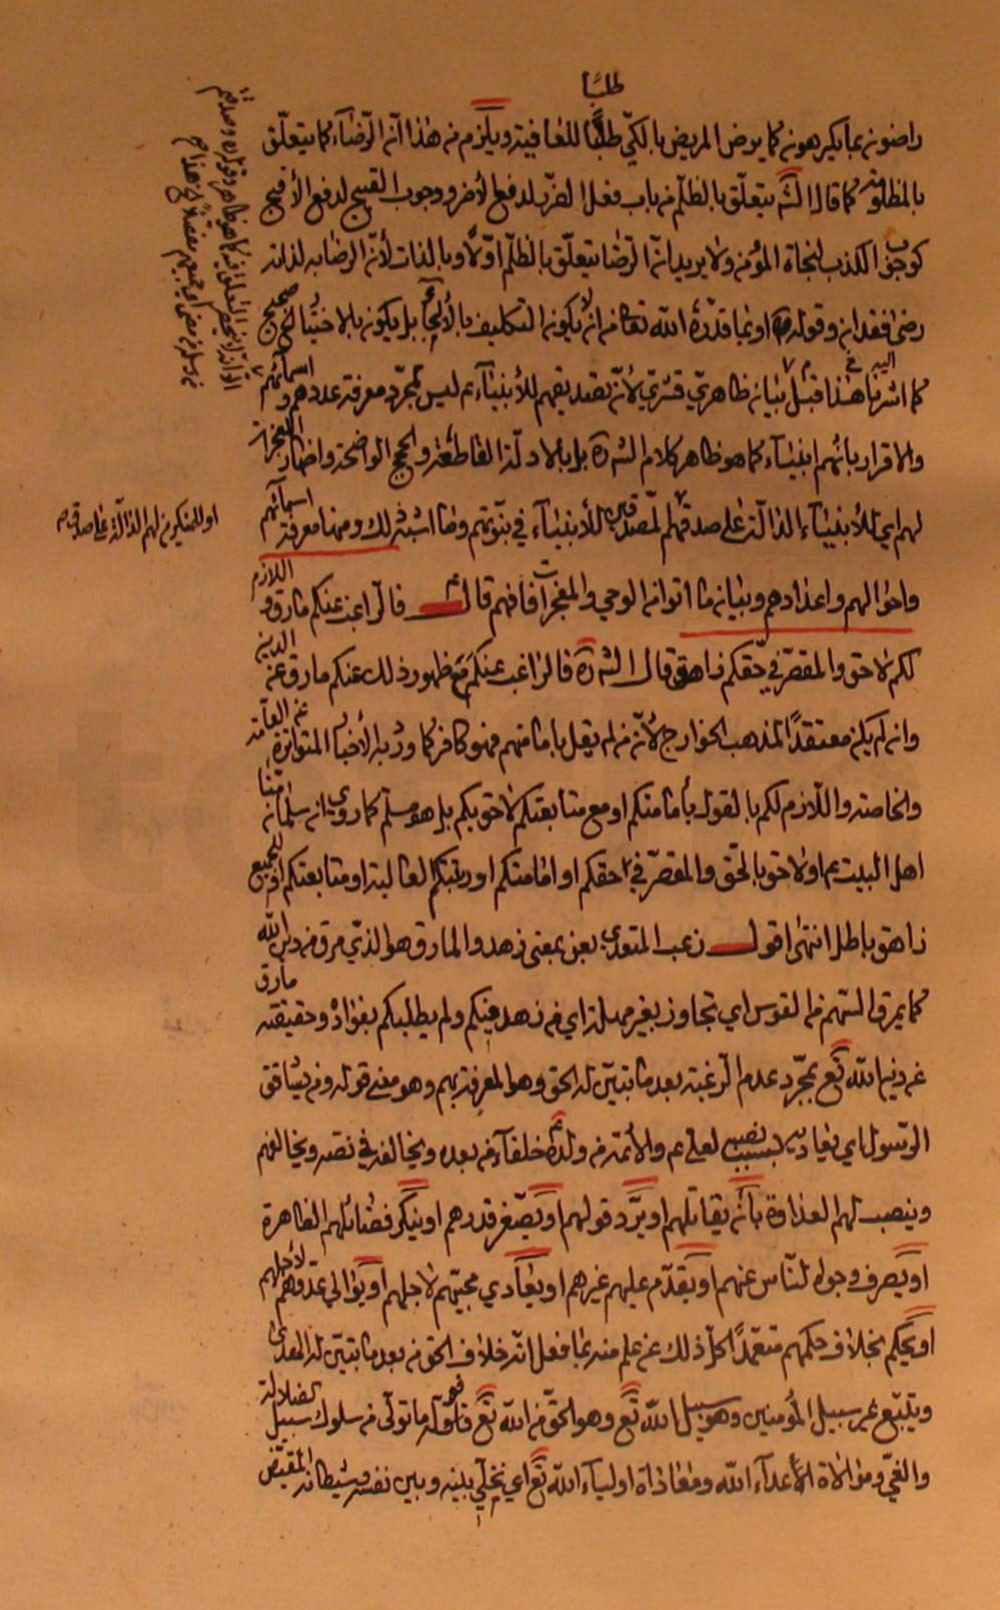 طلبًا
راضون بما يكرهون كما يرضى المريض بالكيّ طلبًا للعافية ويلزم من هذا انّ الرّضاء كما يتعلّق
بالمظلومية كما قال الش يتعلّق بالظلم من باب فعل الضرر لدفع الأضر ووجوب القبيح لدفع الأقبح
كوجوب الكذب لنجاة المؤمن ولا يريد انّ الرّضا يتعلّق بالظلم اوّلًا وبالذات لأنّ الرضا به لذاته
رضى فقد ان وقوله او بما قدّره الله تعالى من ان يكون التكليف بالإلجاء بل يكون بالاختيار صحيح
كما اشرنا اليه في هذا قبل بيان ظاهري قشري لأنّ تصديقهم للأنبياء ع ليس لمجرّد معرفة عددهم واسمائهم
والاقرار بأنّهم انبياء كما هو ظاهر كلام الش ره بل بالادلّة القاطعة والحجج الواضحة واظهار المعجزات
لهم اي للأنبياء الدالّة على صدقهم للمصدقين للأنبياء في نبوّتهم وما اشبه ذلك ومنها معرفة اسمائهم
او للمنكرين لهم الدالّة على صدقهم
واحوالهم واعدادهم وبيان ما اتوا به الوحي والمعجزات فافهم قال ع فالرّاغب عنكم مارق واللازم
لكم لاحق والمقصّر في حقّكم زاهق قال الش ره فالراغب عنكم مع ظهور ذلك عنكم مارق عن الدين
وان لم يكن معتقدًا لمذهب الخوارج لأنّ من لم يقل بإمامتهم فهو كافر كما ورد به الأخبار المتواترة عن العامّة
والخاصة واللّازم لكم بالقول بأمامتكم او مع متابعتكم لاحق بكم بل هو مسلم كما روي ان سلمان منّا
اهل البيت ع او لاحق بالحقّ والمقصّر في حقكم او امامتكم او رتبتكم العالية او متابعتكم او الجميع
زاهق باطل انتهى اقول رغب المتعدي بعن بمعنى زهد والمارق هو الذي مرق من دين الله
كما يمرق السّهم من القوس اي تجاوز بغير مهلة اي من زهد فيكم ولم يطلبكم بفؤاده وحقيقته مارق
عن دين الله تع بمجرّد عدم الرّغبة بعد ما تبيّن له الحق وهو المعرفة بهم وهو معنى قوله ومن يشاقق
الرّسول اي يعاديه بسبب نصبه لعلي ع والأئمة من ولده ع خلفاء من بعده ويخالفه في نصّه ويخالفهم
وينصب لهم العداوة بأنّه يقاتلهم او يردّ قولهم او يصغّر قدرهم او ينكر فضائلهم الظاهرة
او يصرف وجوه النّاس عنهم او يقدّم عليهم غيرهم او يعادي محبّيهم لأجلهم او يوالي عدوّهم لأجلهم
او يحكم بخلاف حكمهم متعمّدًا كلّ ذلك عن علم منه بما فعل انّه خلاف الحق من بعد ما تبيّن له الهدى
ويتّبع غير سبيل المؤمنين وهو سبيل الله تع وهو الحقّ من الله تع قوله نولّه ما تولّى من سلوك سبيل الضلالة
والغيّ وموالاة الأعداء الله ومعاداة اولياء الله تع اي نخلّي بينه وبين نفسه وشيطانه المقيّض